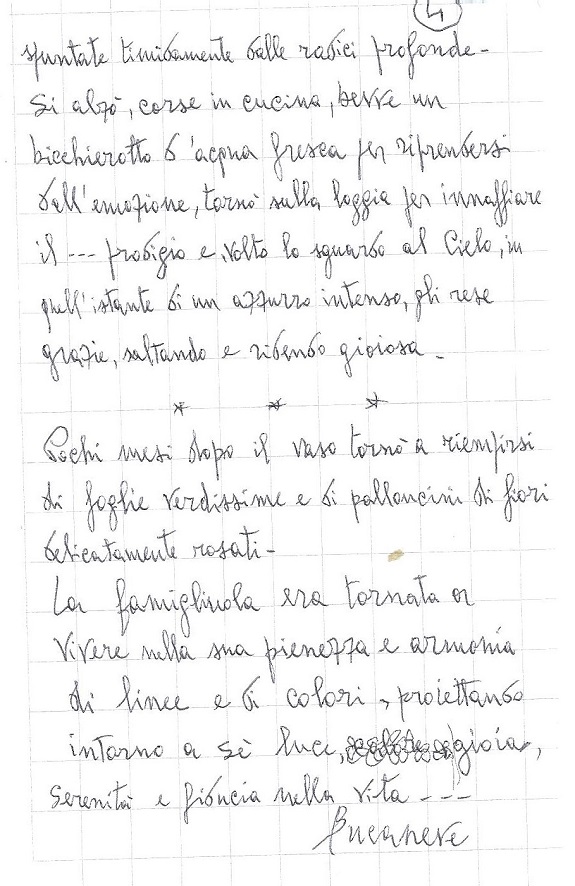 4
spuntate timidamente dalle radici profonde-
Si alzò, corse in cucina, bevve un
bicchierotto d'acqua fresca per riprendersi
dall'emozione, tornò sulla loggia per innaffiare
il --- prodigio e, volto lo sguardo al Cielo, in
quell'istante di un azzurro intenso, gli rese
grazie, saltando e ridendo gioiosa-
* * *
Pochi mesi dopo il vaso tornò a riempirsi
di foglie verdissime e di palloncini di fiori
delicatamente rosati-
La famigliuola era tornata a
vivere nella sua pienezza e armonia
di linee e di colori, proiettando
intorno a sè luce, gioia,
serenità e fiducia nella vita ---
Bucaneve